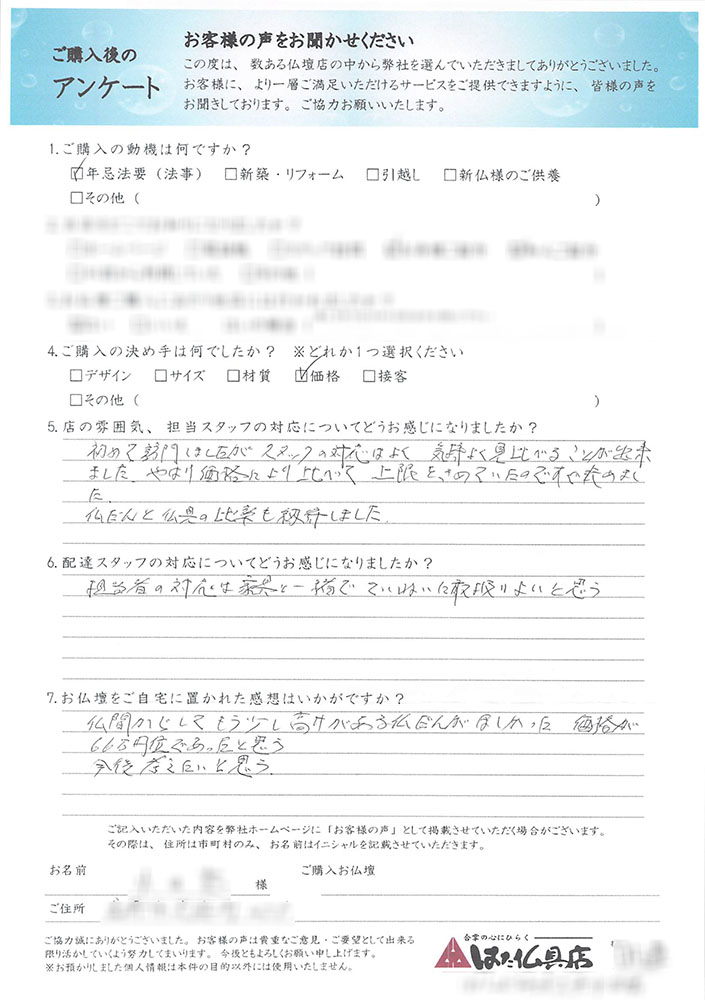 ご購入後の
アンケート
お客様の声をお聞かせください
この度は、数ある仏壇店の中から弊社を選んでいただきましてありがとうございました。
お客様に、より一層ご満足いただけるサービスをご提供できますように、皆様の声を
お聞きしております。ご協力お願いいたします。
1.ご購入の動機は何ですか？
☑年忌法要（法事） □新築・リフォーム □引越し □新仏様のご供養
□その他（ ）
4.ご購入の決め手は何でしたか？ ※どれか1つ選択ください
□デザイン □サイズ □材質 ☑価格 □接客
□その他（ ）
5.店の雰囲気、担当スタッフの対応についてどうお感じになりましたか？
初めて訪門しましたがスタッフの対応はよく 気持よく見比べることが出来
ました。やはり価格により比べって 上限をきめていたのですぐ決めまし
た。
仏だんと仏具の比率も納得しました。
6.配達スタッフの対応についてどうお感じになりましたか？
担当者の対応は家具と一緒で ていねいに取扱りよいと思う
7.お仏壇をご自宅に置かれた感想はいかがですか？
仏間からしてもう少し高サがある仏だんがほしかった 価格が
66万円位であったと思う
今後考えたいと思う。
ご記入いただいた内容を弊社ホームページに「お客様の声」として掲載させていただく場合がございます。
その際は、住所は市町村のみ、お名前はイニシャルを記載させていただきます。
お名前 様 ご購入お仏壇
ご住所
ご協力誠にありがとうございました。お客様の声は貴重なご意見・ご要望として出来る
限り活かしていくよう努力してまいります。今後ともよろしくお願い申し上げます。
※お預かりしました個人情報は本件の目的以外には使用いたしません。
合掌の心にひらく
はた仏具店